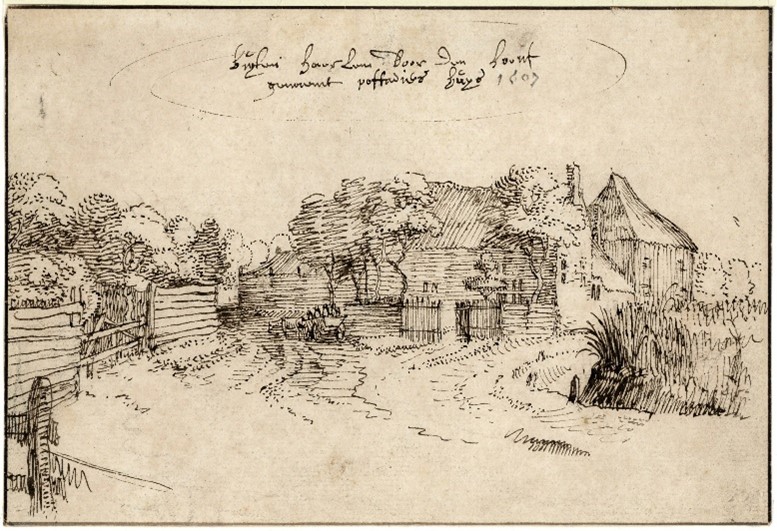 buyten haerlem door den hout
genaemt pottadies huys 1607